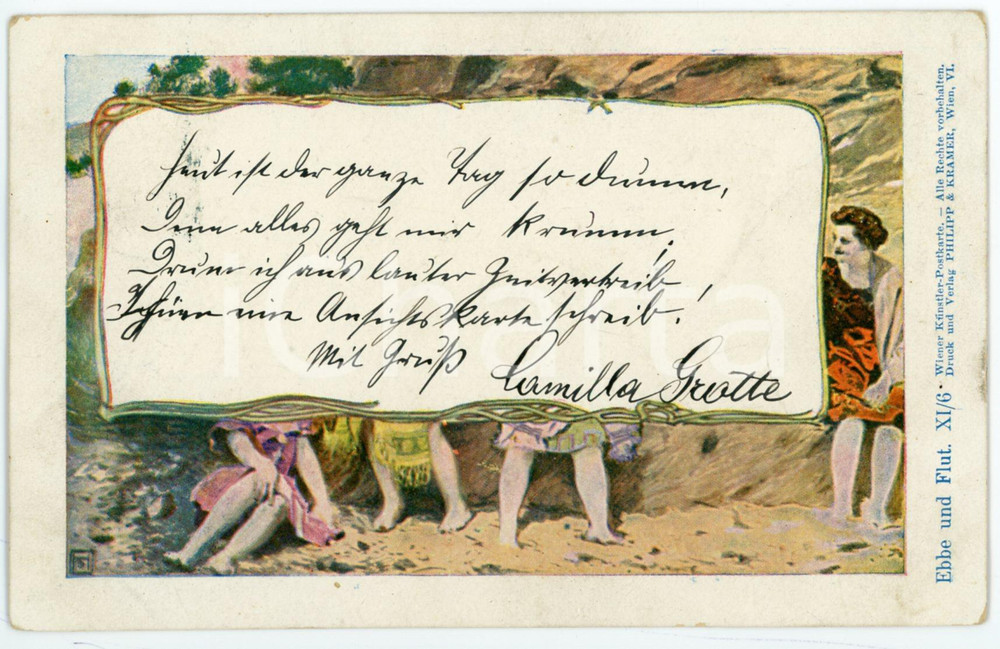 Heut ist der ganze Tag so dumm,
Denn alles geht mir krumm,
Drum ich aus lauter Zeitvertreib,
eine Ansichtskarte schreib!
Mit Gruß
Camilla Grotte
Ebbe und Flut. XI/6 · Wiener Künstler-Postkarte. — Alle Rechte vorbehalten.
Druck und Verlag PHILIPP & KRAMER, Wien, VI.